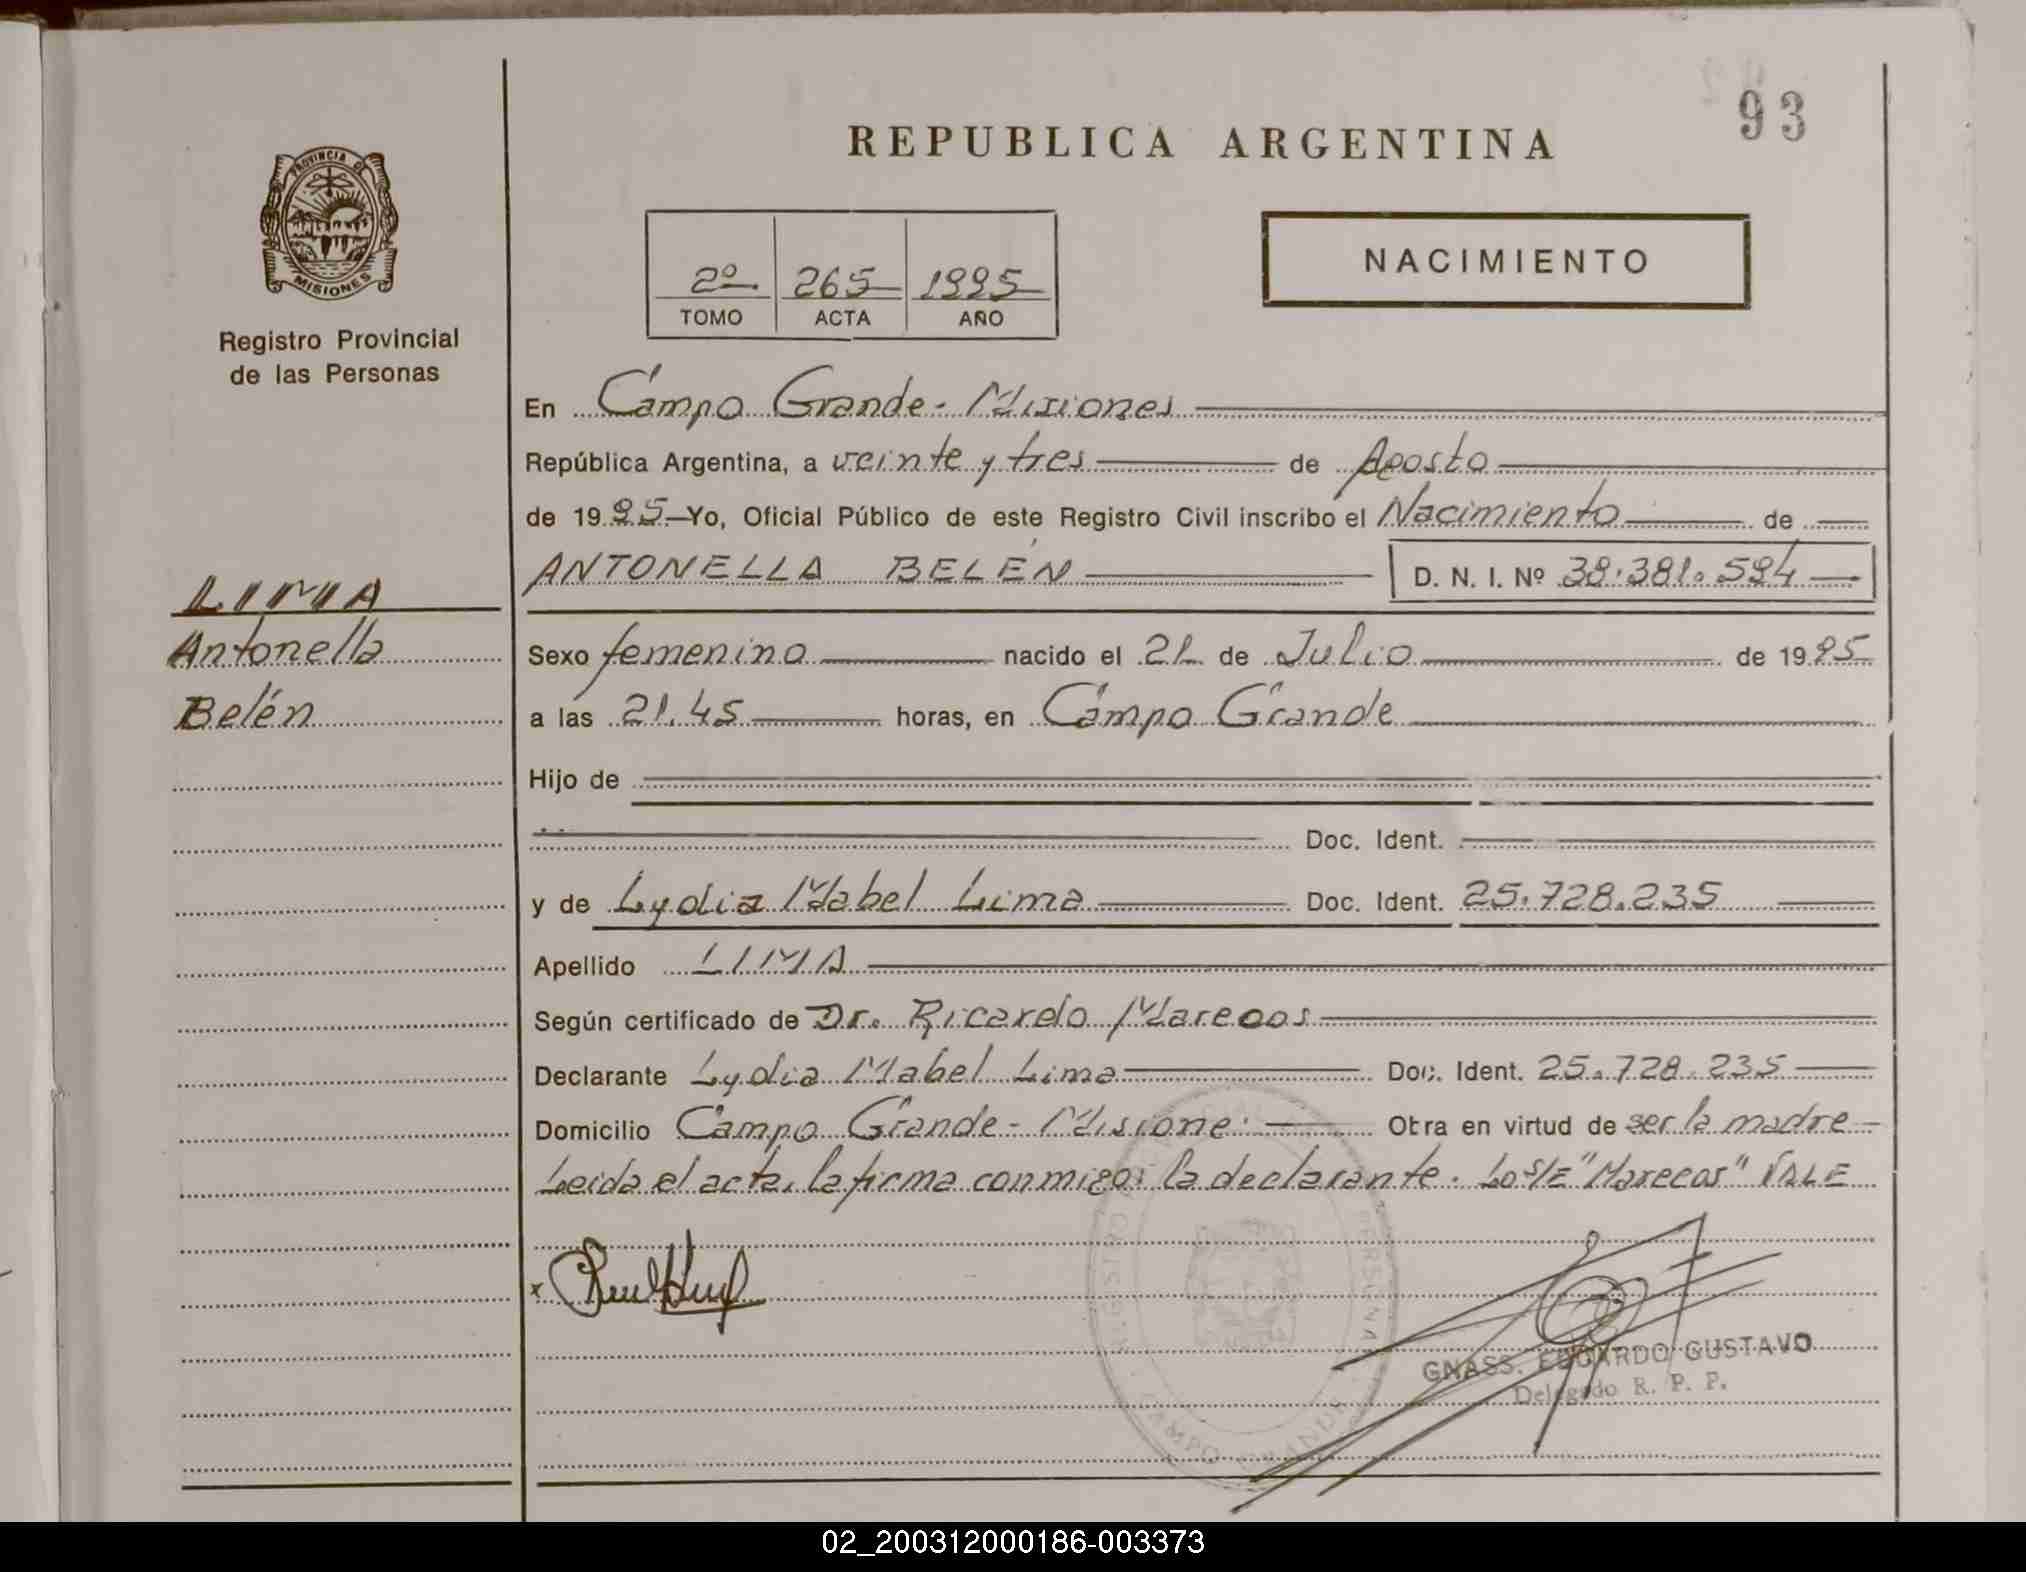 93
REPUBLICA ARGENTINA
PROVINCIA DE
MISIONES
Registro Provincial
de las Personas
NACIMIENTO
2º 265 1995
TOMO ACTA AÑO
En Campo Grande - Misiones
República Argentina, a veinte y tres de Agosto
de 1995 Yo, Oficial Público de este Registro Civil inscribo el Nacimiento de
ANTONELLA BELÉN D. N. I. Nº 38.381.594
LIMA
Antonella
Belén
Sexo femenino nacido el 21 de Julio de 1995
a las 21.45 horas, en Campo Grande
Hijo de
Doc. Ident.
y de Lydia Mabel Lima Doc. Ident. 25.728.235
Apellido LIMA
Según certificado de Dr. Ricardo Marecos
Declarante Lydia Mabel Lima Doc. Ident. 25.728.235
Domicilio Campo Grande - Misione. Obra en virtud de ser la madre
Leida el acta, la firma conmigo: la declarante. Lo S/E "Marecos" VALE
x
GNASS. EDGARDO GUSTAVO
Delegado R. P. P.
CAMPO GRANDE
02_200312000186-003373